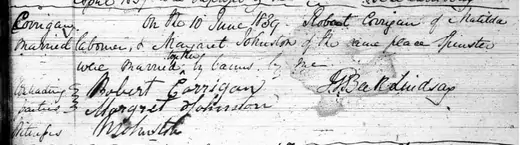 Corrigan On the 10 June 1839 Robert Corrigan of Matilda
married laborer, & Margaret Johnston of the same place Spinster
were married together by banns by me
Contracting Robert Corrigan
parties Margret Johnston
Witness Johnston